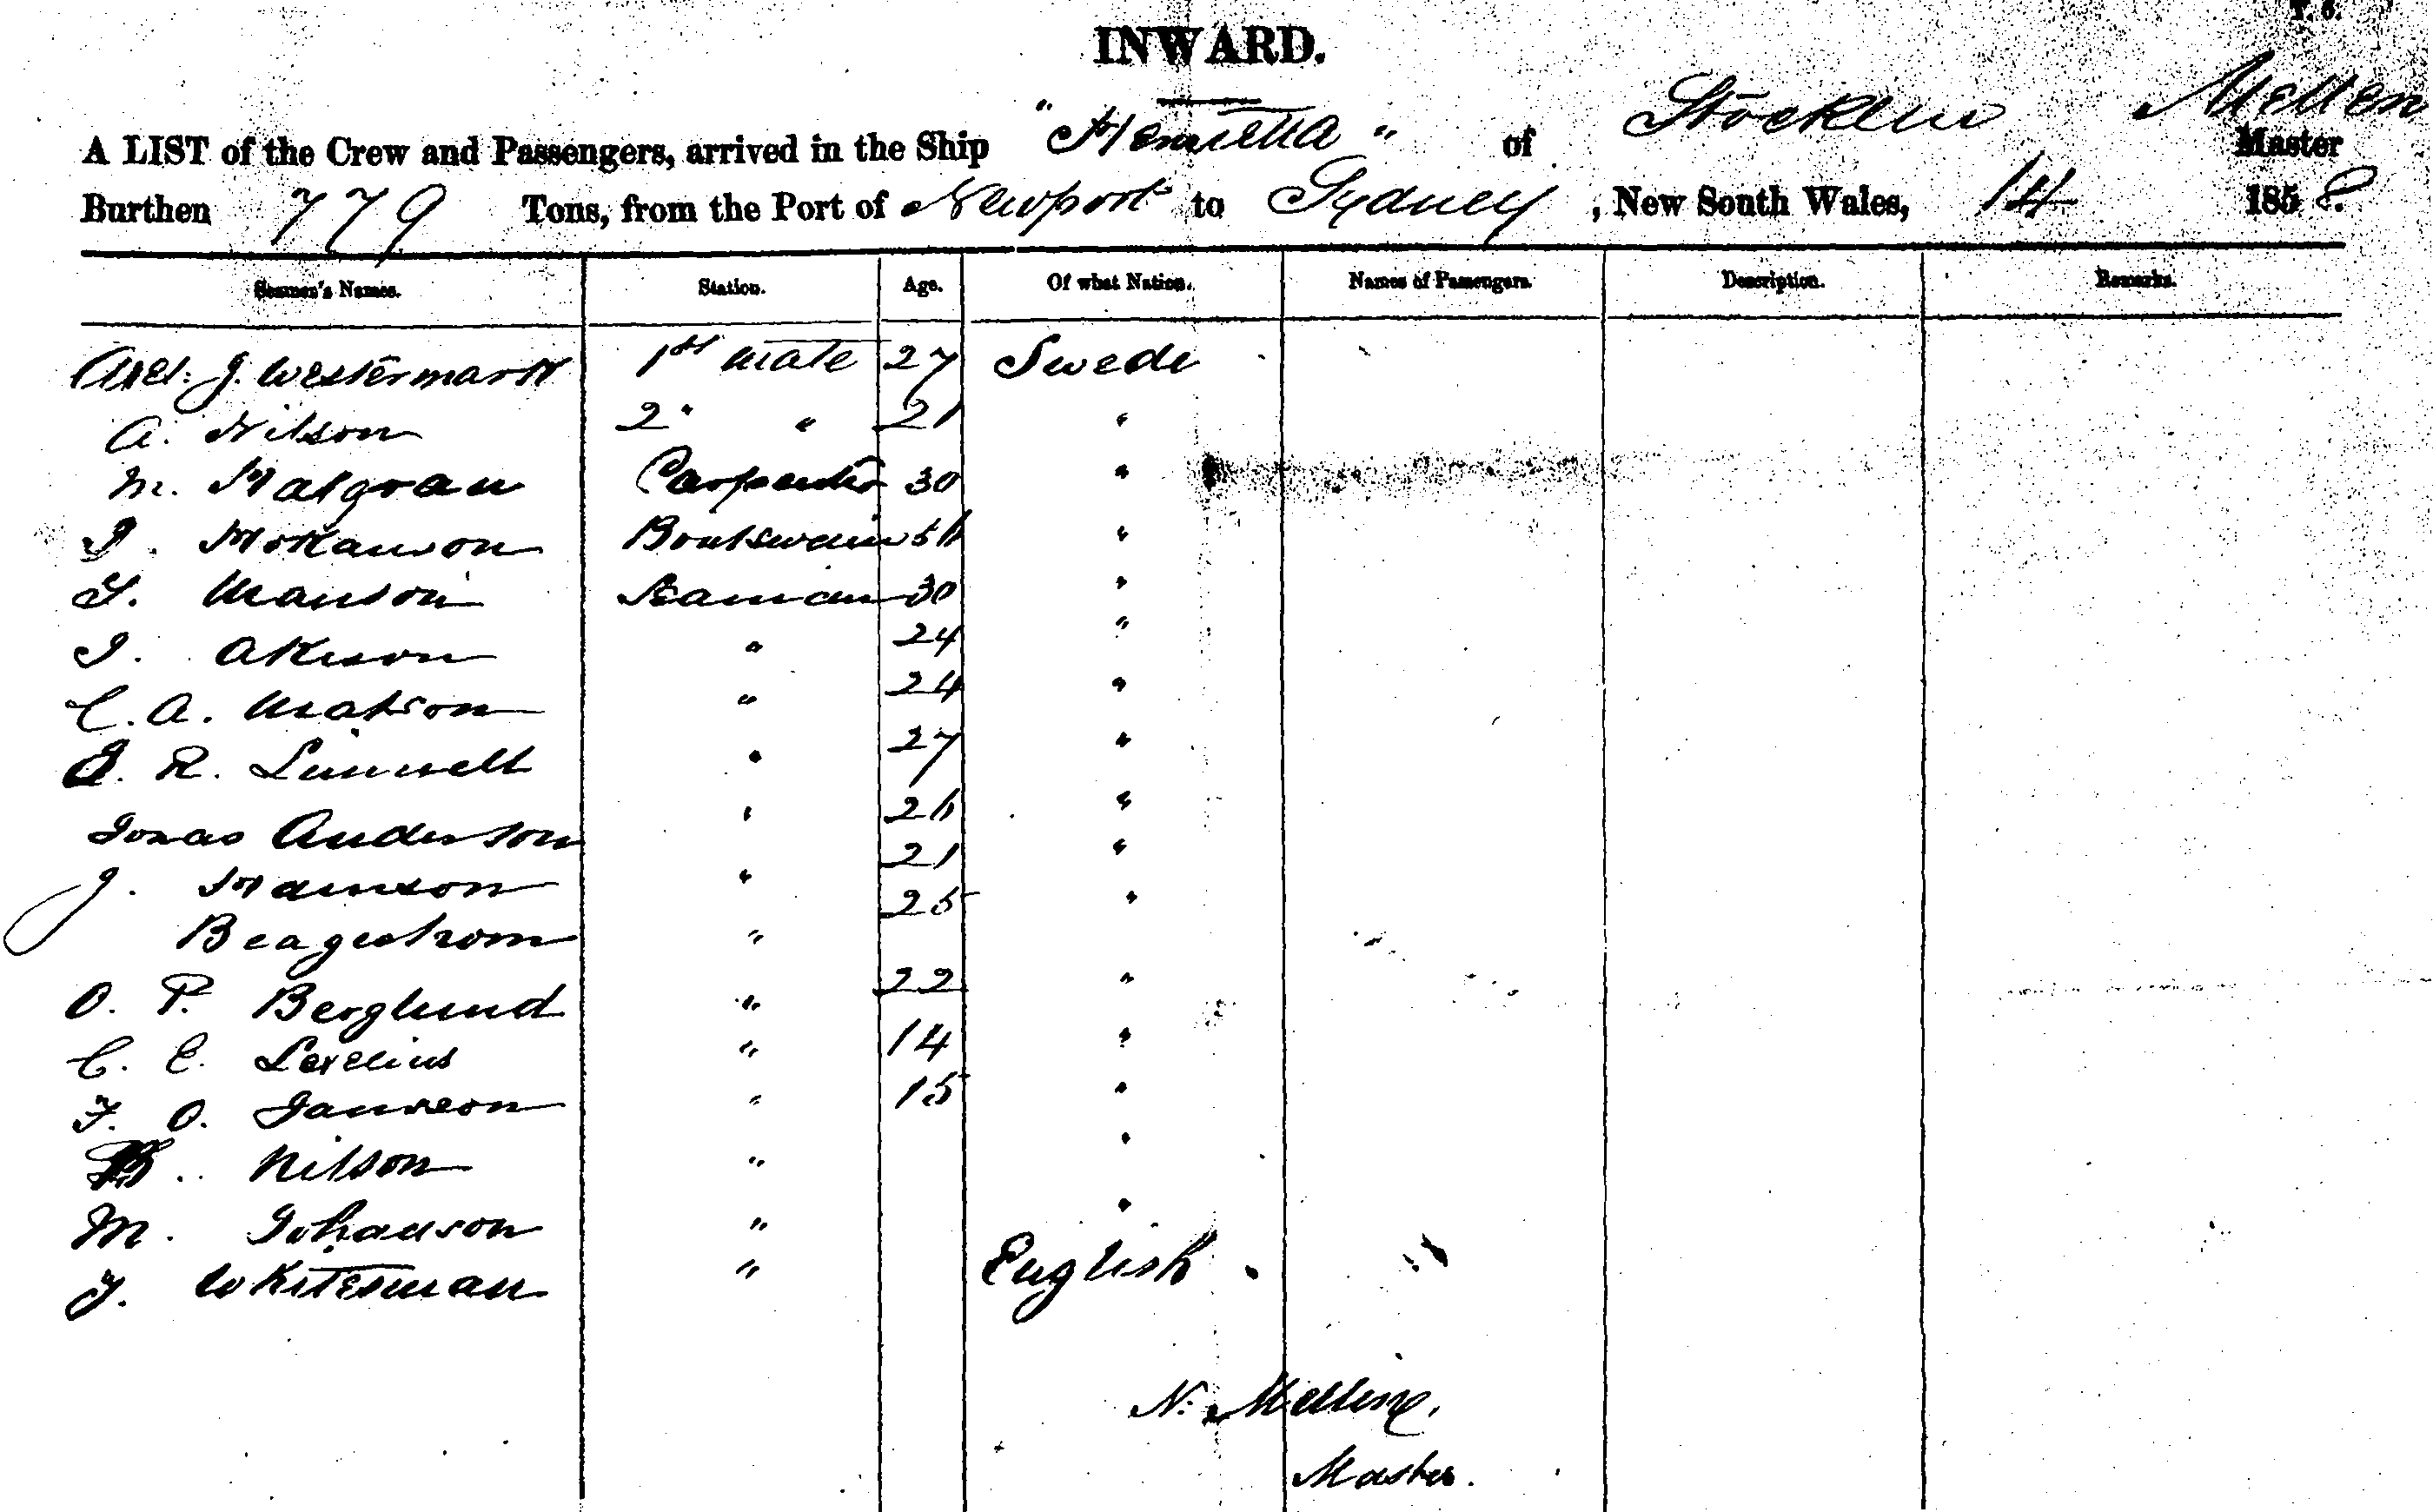 T. 6.
INWARD.
A LIST of the Crew and Passengers, arrived in the Ship "Henrietta" of Mellen Master
Burthen 779 Tons, from the Port of Newport to Sydney, New South Wales, 14 185
Seamen's Names. Station. Age. Of what Nation. Names of Passengers. Description. Remarks.
Axel. J. Westermark 1st Mate 27 Swede
A. Nilson 2" " 21 "
M. Carpenter 30 "
Boatswain "
Manson Seaman 30 "
Akeson " 24 "
C. A. Matson " 24 "
R. " 27 "
Jonas Anderson " "
J. " 21 "
" 25 "
O. P. Berglund " 22 "
C. E. Lexelius " 14 "
F. O. Janson " 15 "
Nilson " "
M. Johanson " "
J. Whitesman " English
N. Melling,
Master.